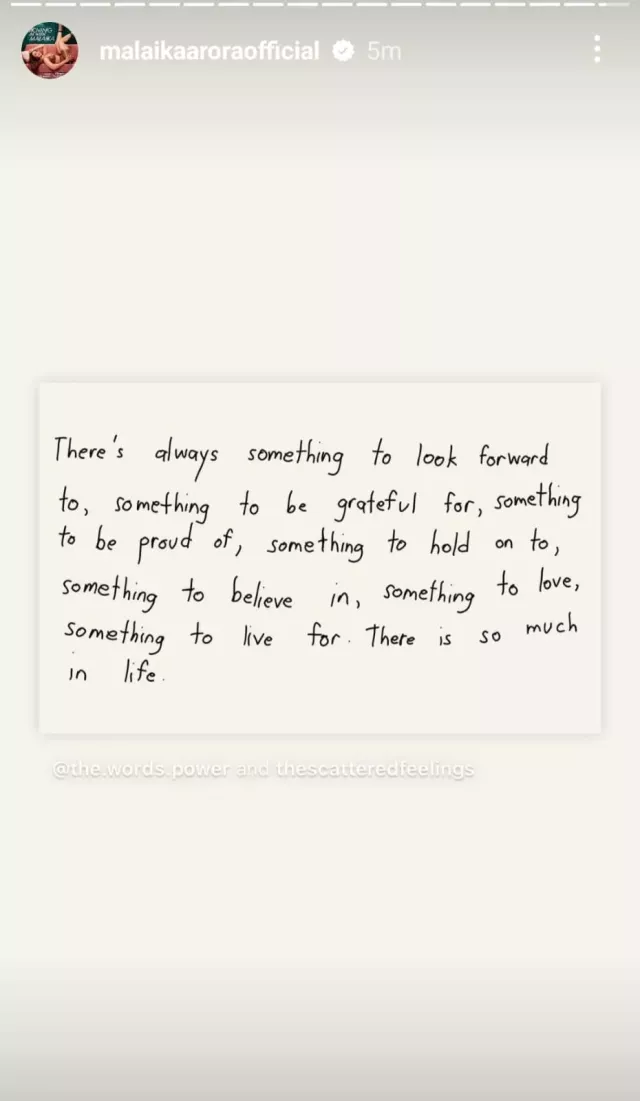 malaikaaroraofficial 5m
There's always something to look forward
to, something to be grateful for, something
to be proud of, something to hold on to,
something to believe in, something to love,
something to live for. There is so much
in life.
@the.words.power and thescatteredfeelings